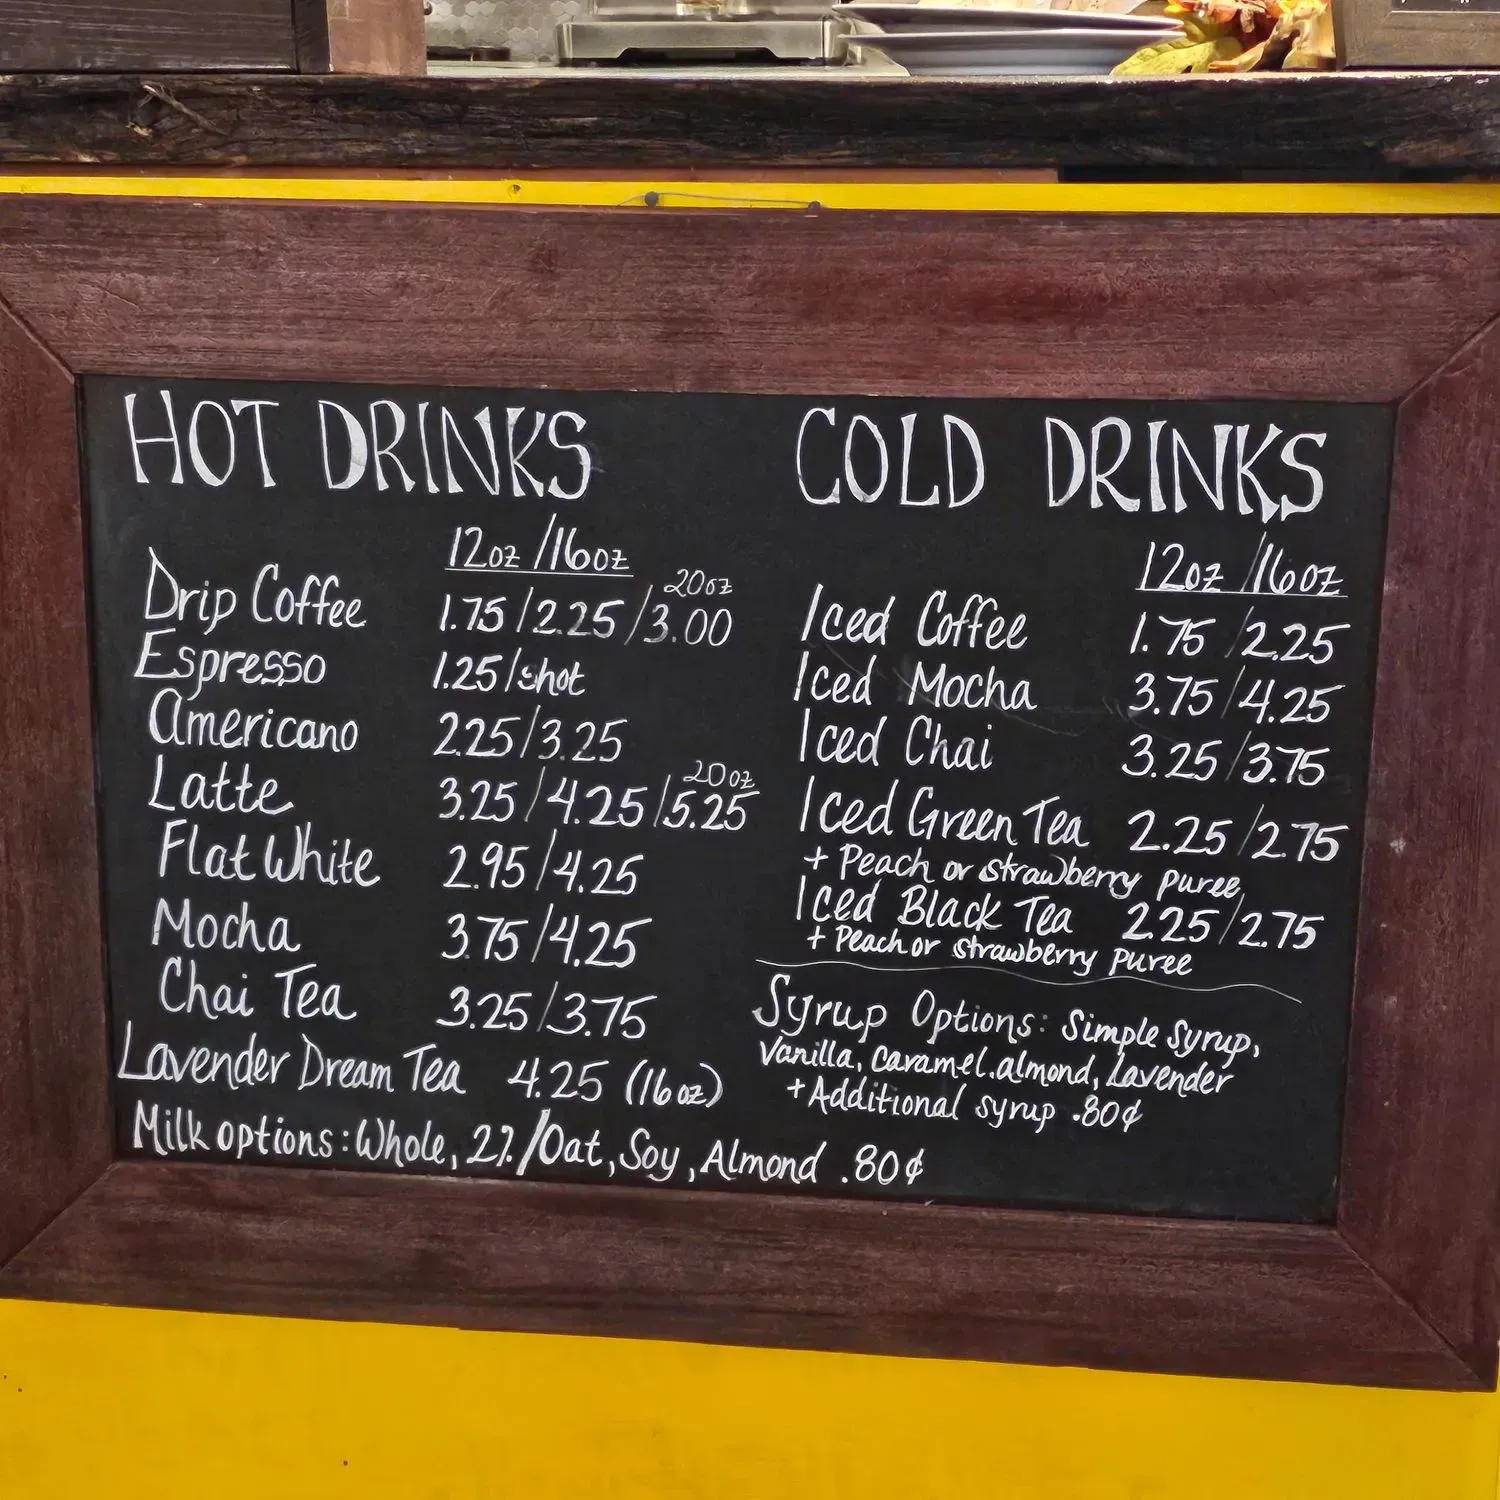 HOT DRINKS
12oz /16oz
20oz
Drip Coffee 1.75/2.25/3.00
Espresso 1.25/shot
Americano 2.25/3.25
20oz
Latte 3.25/4.25/5.25
Flat White 2.95/4.25
Mocha 3.75/4.25
Chai Tea 3.25/3.75
Lavender Dream Tea 4.25 (16oz)
Milk options: Whole, 2%/Oat, Soy, Almond .80¢
COLD DRINKS
12oz /16oz
Iced Coffee 1.75/2.25
Iced Mocha 3.75/4.25
Iced Chai 3.25/3.75
Iced Green Tea 2.25/2.75
+ Peach or strawberry puree
Iced Black Tea 2.25/2.75
+ Peach or strawberry puree
Syrup Options: Simple Syrup,
Vanilla, Caramel, almond, Lavender
+ Additional syrup .80¢